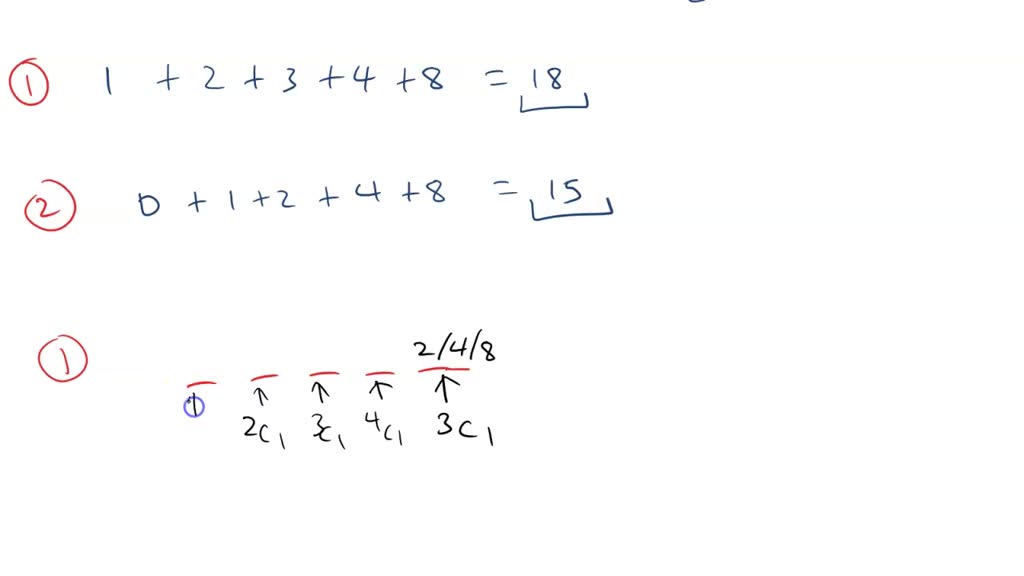 ① 1 + 2 + 3 + 4 + 8 = 18
② 0 + 1 + 2 + 4 + 8 = 15
①
2/4/8
1 2C1 3C1 4C1 3C1